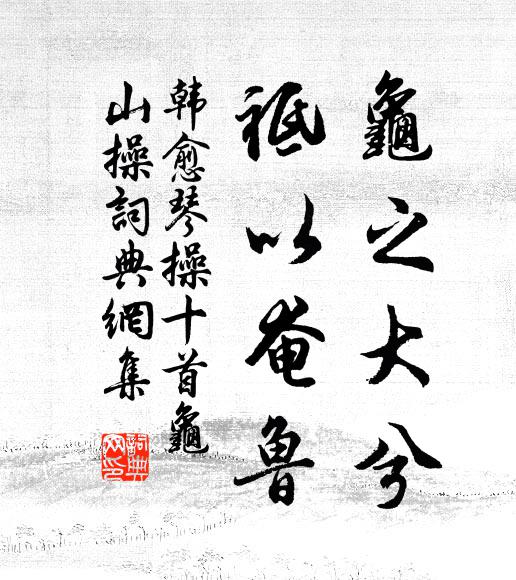 龜之大兮
祗以奄魯
韩愈琴操十首龜
山操詞典網集